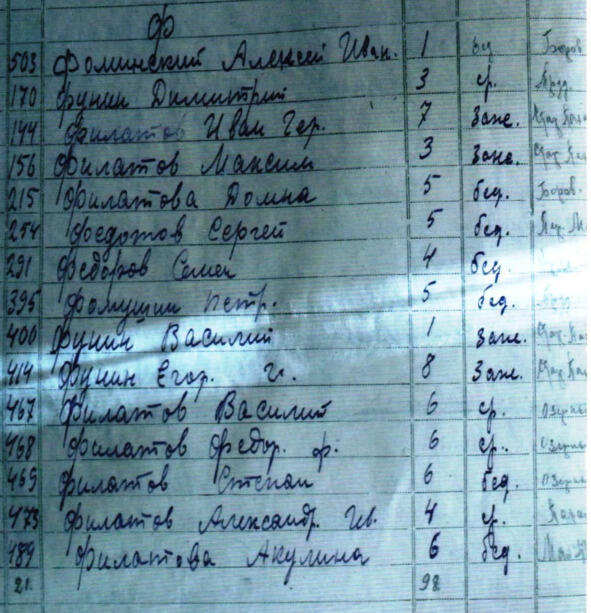 Ф
503 Фоминский Алексей Иван. 1 Боров.
170 Фунин Димитрий 3 ср.
144 Филатов Иван Гер. 7 заж.
156 Филатов Максим 3 заж.
215 Филатова Домна 5 бед. Боров.
254 Федотов Сергей 5 бед.
291 Федотов Семен 4 бед.
395 Фомушин Петр. 5 бед.
400 Фунин Василий 1 заж.
414 Фунин Егор. И. 8 заж.
467 Филатов Василий 6 ср.
468 Филатов Федор. Ф. 6 ср.
469 Филатов Степан 6 бед.
473 Филатов Александр. 4 ср.
489 Филатова Акулина 6 бед.
21. 98